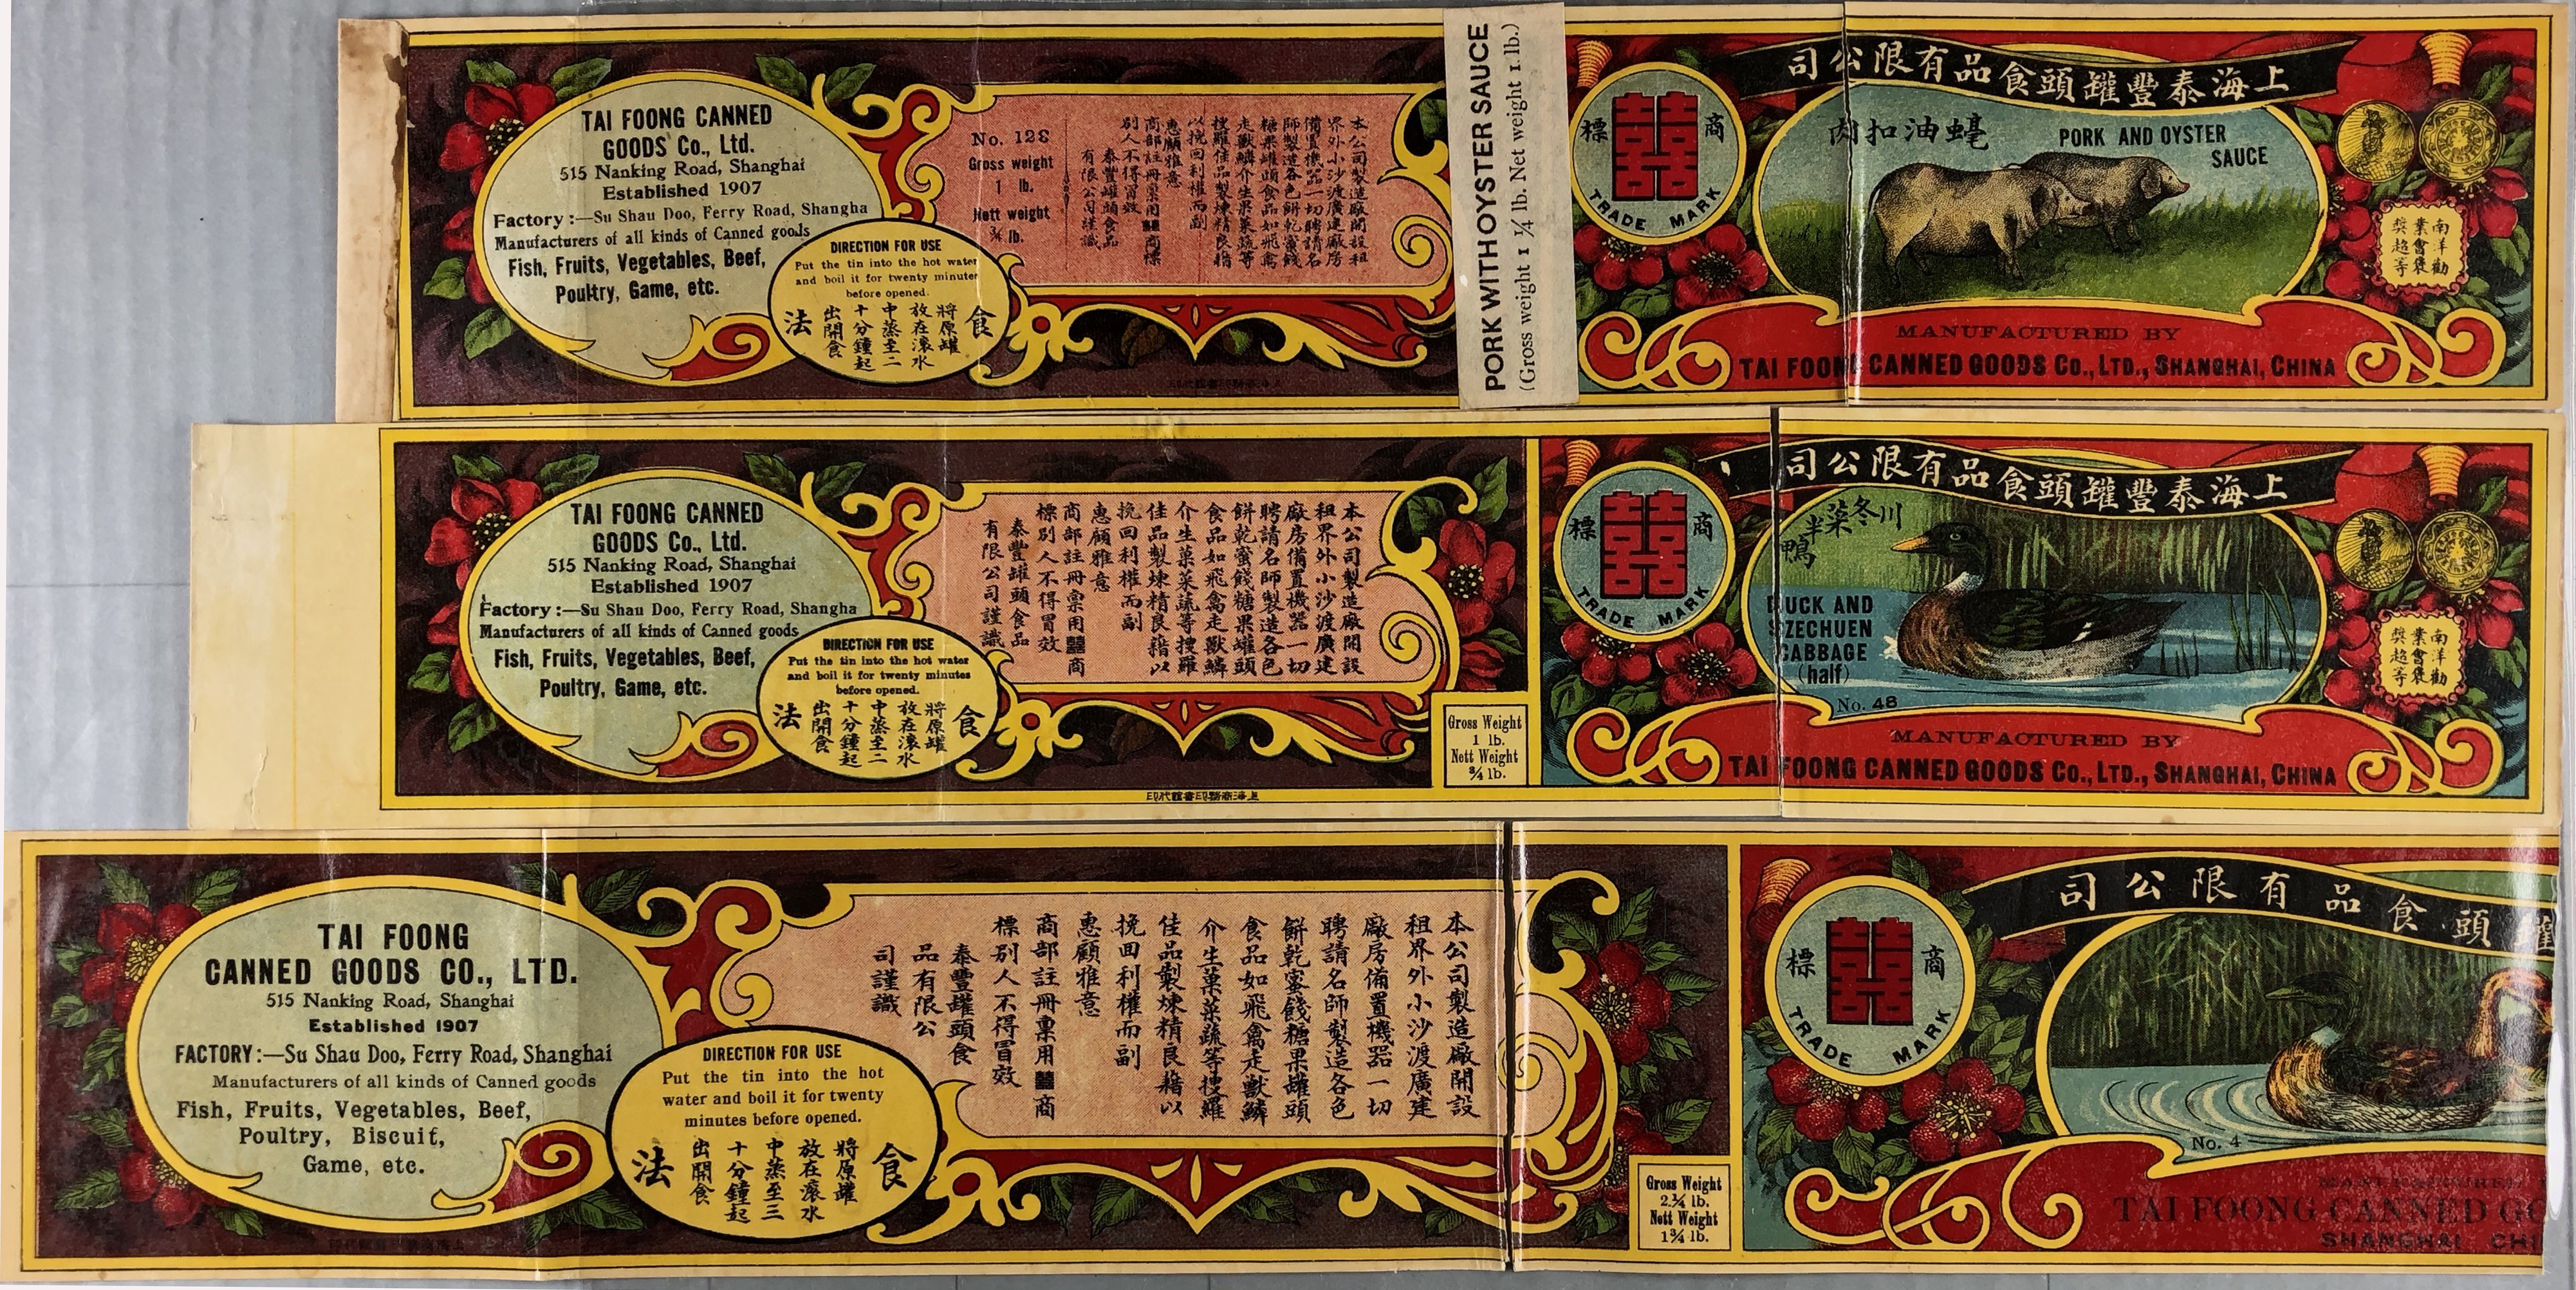 TAI FOONG CANNED
GOODS Co., Ltd.
515 Nanking Road, Shanghai
Established 1907
Factory :—Su Shau Doo, Ferry Road, Shangha
Manufacturers of all kinds of Canned goods
Fish, Fruits, Vegetables, Beef,
Poultry, Game, etc.
DIRECTION FOR USE
Put the tin into the hot water
and boil it for twenty minutes
before opened.
食法
將原罐
放在滾水
中蒸至二
十分鐘起
出開食
No. 128
Gross weight
1 lb.
Nett weight
¾ lb.
本公司製造廠開設租
界外小沙渡廣建廠房
備置機器一切聘請名
師製造各色餅乾蜜餞
糖果罐頭食品如飛禽
走獸鱗介生果菜蔬等
搜羅佳品製煉精良藉
以挽回利權而副
惠顧雅意
商部註冊稟用囍商標
別人不得冒效
泰豐罐頭食品
有限公司謹識
PORK WITH OYSTER SAUCE
(Gross weight 1 ¼ lb. Net weight 1 lb.)
商標
囍
TRADE MARK
上海泰豐罐頭食品有限公司
蠔油扣肉
PORK AND OYSTER
SAUCE
南洋勸
業會褒
獎超等
MANUFACTURED BY
TAI FOONG CANNED GOODS Co., LTD., SHANGHAI, CHINA
上海商務印書館代印
TAI FOONG CANNED
GOODS Co., Ltd.
515 Nanking Road, Shanghai
Established 1907
Factory :—Su Shau Doo, Ferry Road, Shangha
Manufacturers of all kinds of Canned goods
Fish, Fruits, Vegetables, Beef,
Poultry, Game, etc.
DIRECTION FOR USE
Put the tin into the hot water
and boil it for twenty minutes
before opened.
食法
將原罐
放在滾水
中蒸至二
十分鐘起
出開食
本公司製造廠開設
租界外小沙渡廣建
廠房備置機器一切
聘請名師製造各色
餅乾蜜餞糖果罐頭
食品如飛禽走獸鱗
介生菓菜蔬等搜羅
佳品製煉精良藉以
挽回利權而副
惠顧雅意
商部註冊稟用囍商
標別人不得冒效
泰豐罐頭食品
有限公司謹識
上海商務印書館代印
Gross Weight
1 lb.
Nett Weight
¾ lb.
商標
囍
TRADE MARK
上海泰豐罐頭食品有限公司
川冬菜半鴨
DUCK AND
SZECHUEN
CABBAGE
(half)
No. 48
南洋勸
業會褒
獎超等
MANUFACTURED BY
TAI FOONG CANNED GOODS Co., LTD., SHANGHAI, CHINA
TAI FOONG
CANNED GOODS CO., LTD.
515 Nanking Road, Shanghai
Established 1907
FACTORY:—Su Shau Doo, Ferry Road, Shanghai
Manufacturers of all kinds of Canned goods
Fish, Fruits, Vegetables, Beef,
Poultry, Biscuit,
Game, etc.
DIRECTION FOR USE
Put the tin into the hot
water and boil it for twenty
minutes before opened.
食法
將原罐
放在滾水
中蒸至三
十分鐘起
出開食
本公司製造廠開設
租界外小沙渡廣建
廠房備置機器一切
聘請名師製造各色
餅乾蜜餞糖果罐頭
食品如飛禽走獸鱗
介生菓菜蔬等搜羅
佳品製煉精良藉以
挽回利權而副
惠顧雅意
商部註冊稟用囍商
標別人不得冒效
泰豐罐頭食
品有限公
司謹識
上海商務印書館代印
Gross Weight
2¼ lb.
Nett Weight
1¾ lb.
商標
囍
TRADE MARK
罐頭食品有限公司
No. 4
MANUFACTURED
TAI FOONG CANNED GO
SHANGHAI CHI